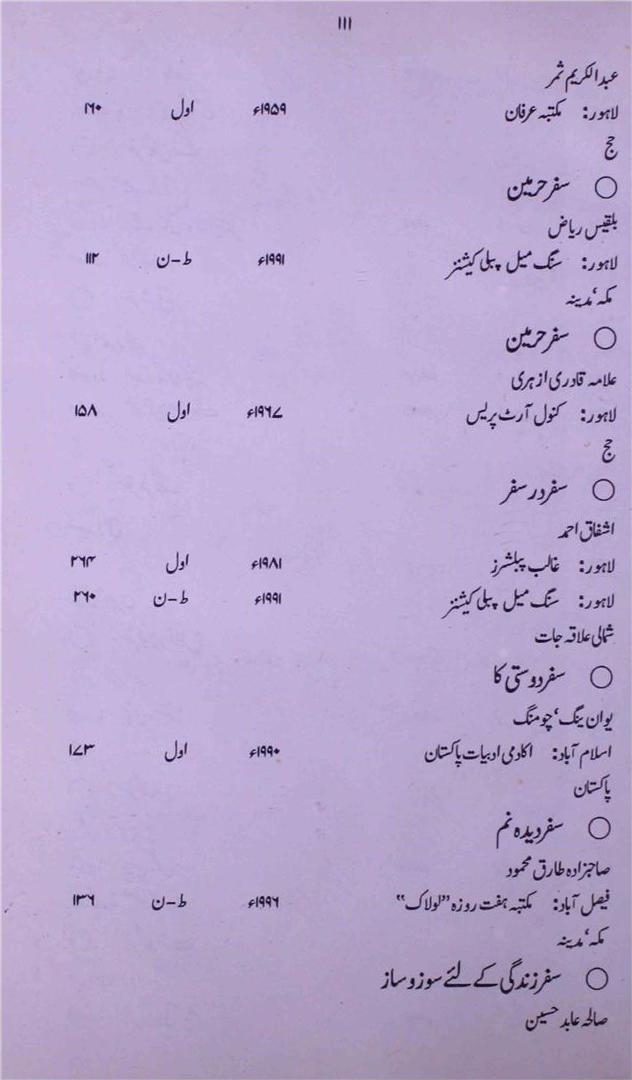 ۱۱۱
عبدالکریم ثمر
لاہور: مکتبہ عرفان ۱۹۵۹ء اول ۱۶۰
حج
○ سفر حرمین
بلقیس ریاض
لاہور: سنگ میل پبلی کیشنز ۱۹۹۱ء ط-ن ۱۱۲
مکہ، مدینہ
○ سفر حرمین
علامہ قادری ازہری
لاہور: کنول آرٹ پریس ۱۹۶۷ء اول ۱۵۸
حج
○ سفر در سفر
اشفاق احمد
لاہور: غالب پبلشرز ۱۹۸۱ء اول ۲۶۴
لاہور: سنگ میل پبلی کیشنز ۱۹۹۱ء ط-ن ۲۶۰
شمالی علاقہ جات
○ سفر دوستی کا
یوان ینگ، چومنگ
اسلام آباد: اکادمی ادبیات پاکستان ۱۹۹۰ء اول ۱۷۳
پاکستان
○ سفر دیدہ نم
صاحبزادہ طارق محمود
فیصل آباد: مکتبہ ہفت روزہ ”لولاک“ ۱۹۹۶ء ط-ن ۱۳۶
مکہ، مدینہ
○ سفر زندگی کے لئے سوز و ساز
صالحہ عابد حسین